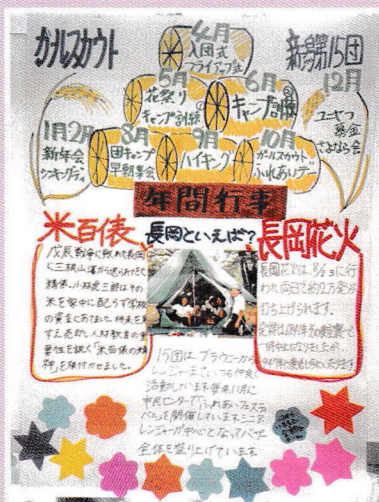 ガールスカウト
新潟第15団
4月
入団式
フライアップ
5月
花祭り
キャンプ訓練
6月
キャンプ訓練
12月
ユニセフ
募金
さよなら会
1月2月
新年会
シンキングデイ
8月
団キャンプ
早朝集会
9月
ハイキング
10月
ガールスカウト
ふれあいデー
年間行事
米百俵
戊辰戦争に敗れた長岡
に三根山藩から送られてきた
精俵。小林虎三郎はその
米を家中に配らず学校
の資金にあてました。将来を見
すえ
人材教育の重
要性を説く「米百俵の精
神」を根付かせました。
長岡といえば?
長岡花火
長岡花火は、8/2、3に行
われ両日で約2万発が
打ち上げられます。
15団は、ブラウニーから
レンジャーまでいつも仲良く
活動しています。毎年11月に
市民センターで「ふれあいフェスティ
バル」を開催しています。シニア、
レンジャーが中心となってバザー
全体を盛り上げています。